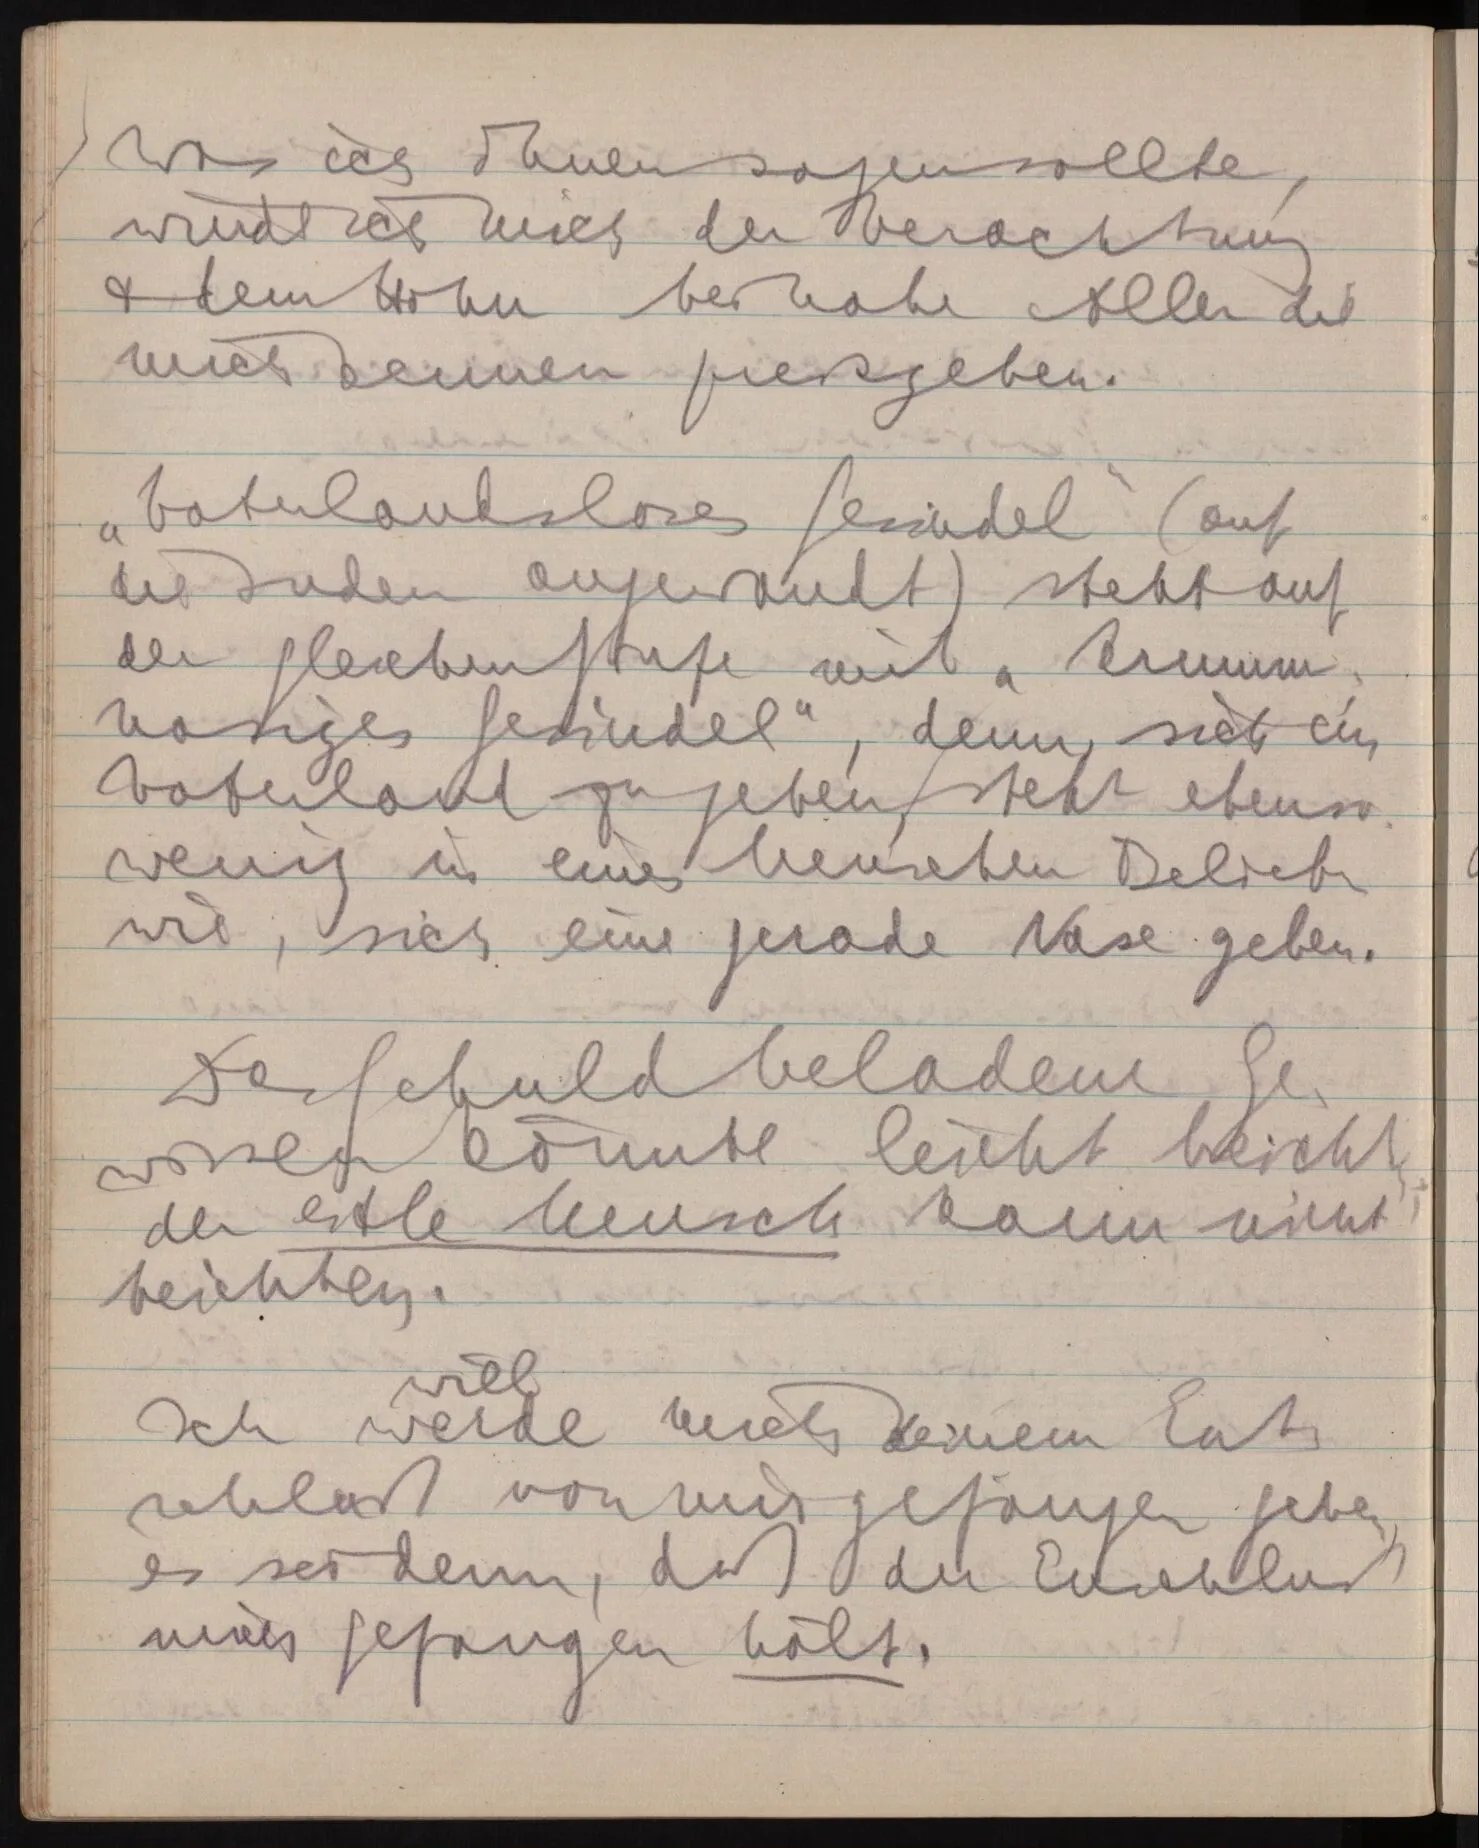 was ich Ihnen sagen sollte,
würde ich mich der Verachtung
& dem Hohn beinahe Aller die
mich kennen preisgeben.
„Vaterlandsloses Gesindel“ (auf
die Juden angewandt) steht auf
der gleichen Stufe mit „krumm-
nasiges Gesindel“, denn, sich ein
Vaterland zu geben, steht ebenso-
wenig in eines Menschen Belieben
wie, sich eine gerade Nase geben.
Das Schuld beladene Ge-
wissen könnte leicht beichten;
der eitle Mensch kann nicht
beichten.
will
Ich werde mich keinem Ent-
schluß von mir gefangen geben,
es sei denn, daß der Entschluß
mich gefangen hält.